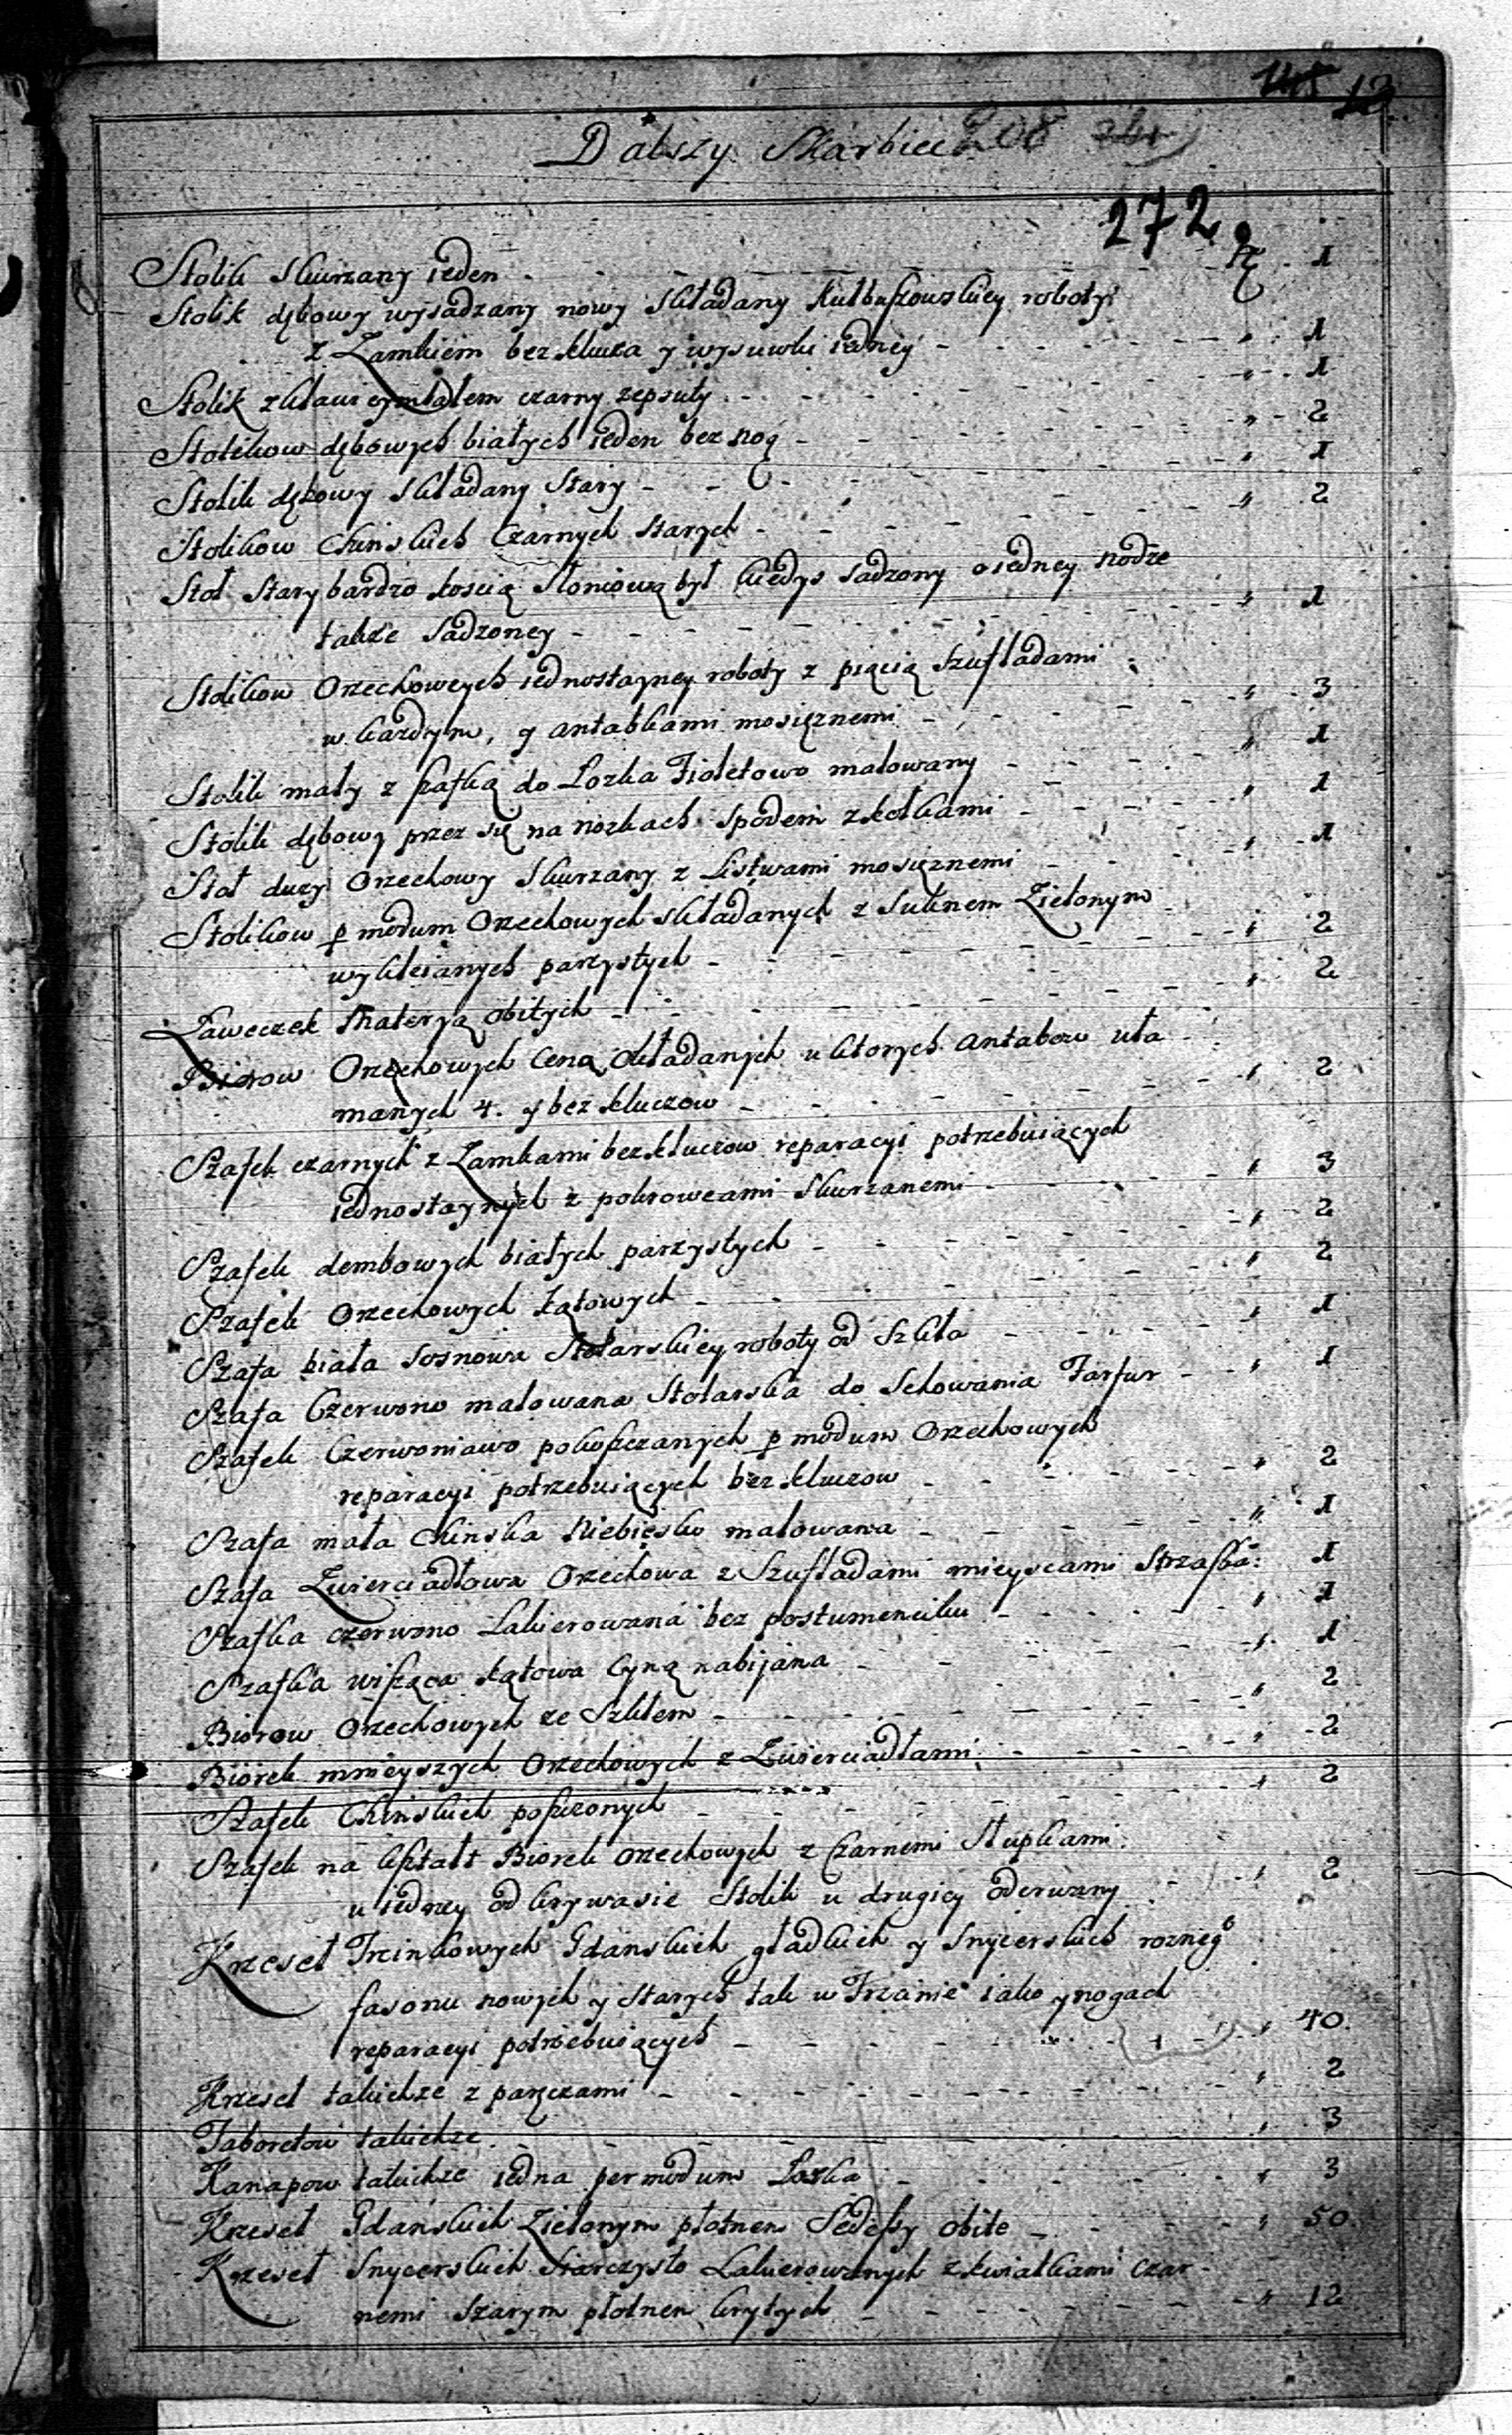 13
Dalszy Skarbiec 208
272.
Stolik skurzany ieden - N 1
Stolik dębowy wysadzany nowy składany Kulbuszowskiey roboty
z Zamkiem bez klucza y wysuwki iedney - " 1
Stolik z klawicymbałem czarny zepsuty - " 1
Stolikow dębowych białych ieden bez nog - " 2
Stolik dębowy składany stary - " 1
Stolikow Chinskich Czarnych starych - " 2
Stoł stary bardzo kością słoniową był kiedys sadzony o iedney nodze
także sadzoney - " 1
Stolikow Orzechowych iednostayney roboty z pięcią szufladami
w każdym, y antabkami mosięznemi - " 3
Stolik mały z szafką do Łozka Fioletowo malowany - " 1
Stolik dębowy przez się na nozkach spodem z kołkami - " 1
Stoł duzy Orzechowy skurzany z Listwami mosięznemi - " 1
Stolikow p modum Orzechowych składanych z suknem Zielonym
wykleianych parzystych - " 2
Ławeczek Materyą obitych - " 2
Biorow Orzechowych Ceną okładanych u ktorych antabow uła
manych 4. y bez kluczow - " 2
Szafek czarnych z Zamkami bez kluczow reparacyi potrzebuiących
iednostaynych z pokrowcami skurzanemi - " 3
Szafek dembowych białych parzystych - " 2
Szafek Orzechowych kątowych - " 2
Szafa biała sosnowa Stolarskiey roboty od Szkła - " 1
Szafa Czerwono malowana Stolarska do Schowania Farfur - " 1
Szafek Czerwoniawo pokoszczanych p modum Orzechowych
reparacyi potrzebuiących bez kluczow - " 2
Szafa mała Chinska Niebiesko malowana - " 1
Szafa Zwierciadłowa Orzechowa z Szufladami mieyscami strzaska: 1
Szafka czerwono Lakierowana bez postumenciku - " 1
Szafka wisząca kątowa Cyną nabijana - " 1
Biorow Orzechowych ze Szkłem - " 2
Biorek mnieyszych Orzechowych z Zwierciadłami - " 2
Szafek Chinskich poszczonych - " 2
Szafek na kształt Biorek orzechowych z Czarnemi Słupkami
u iedney odkrywasie Stolik u drugiey oderwany - " 2
Krzeseł Trzinkowych Gdanskich gładkich y Snycerskich roznego
fasonu nowych y starych tak w Trzcinie iako y nogach
reparacyi potrzebuiących - " 40.
Krzeseł takichze z poręczami - " 2
Taboretow takichze - " 3
Kanapow takichze iedna per modum Łozka - " 3
Krzeseł Gdanskich Zielonym płotnem Sedessy obite - " 50.
Krzeseł Snycerskich Lakierowanych z kwiatkami czar-
nemi szarym płotnem krytych - " 12